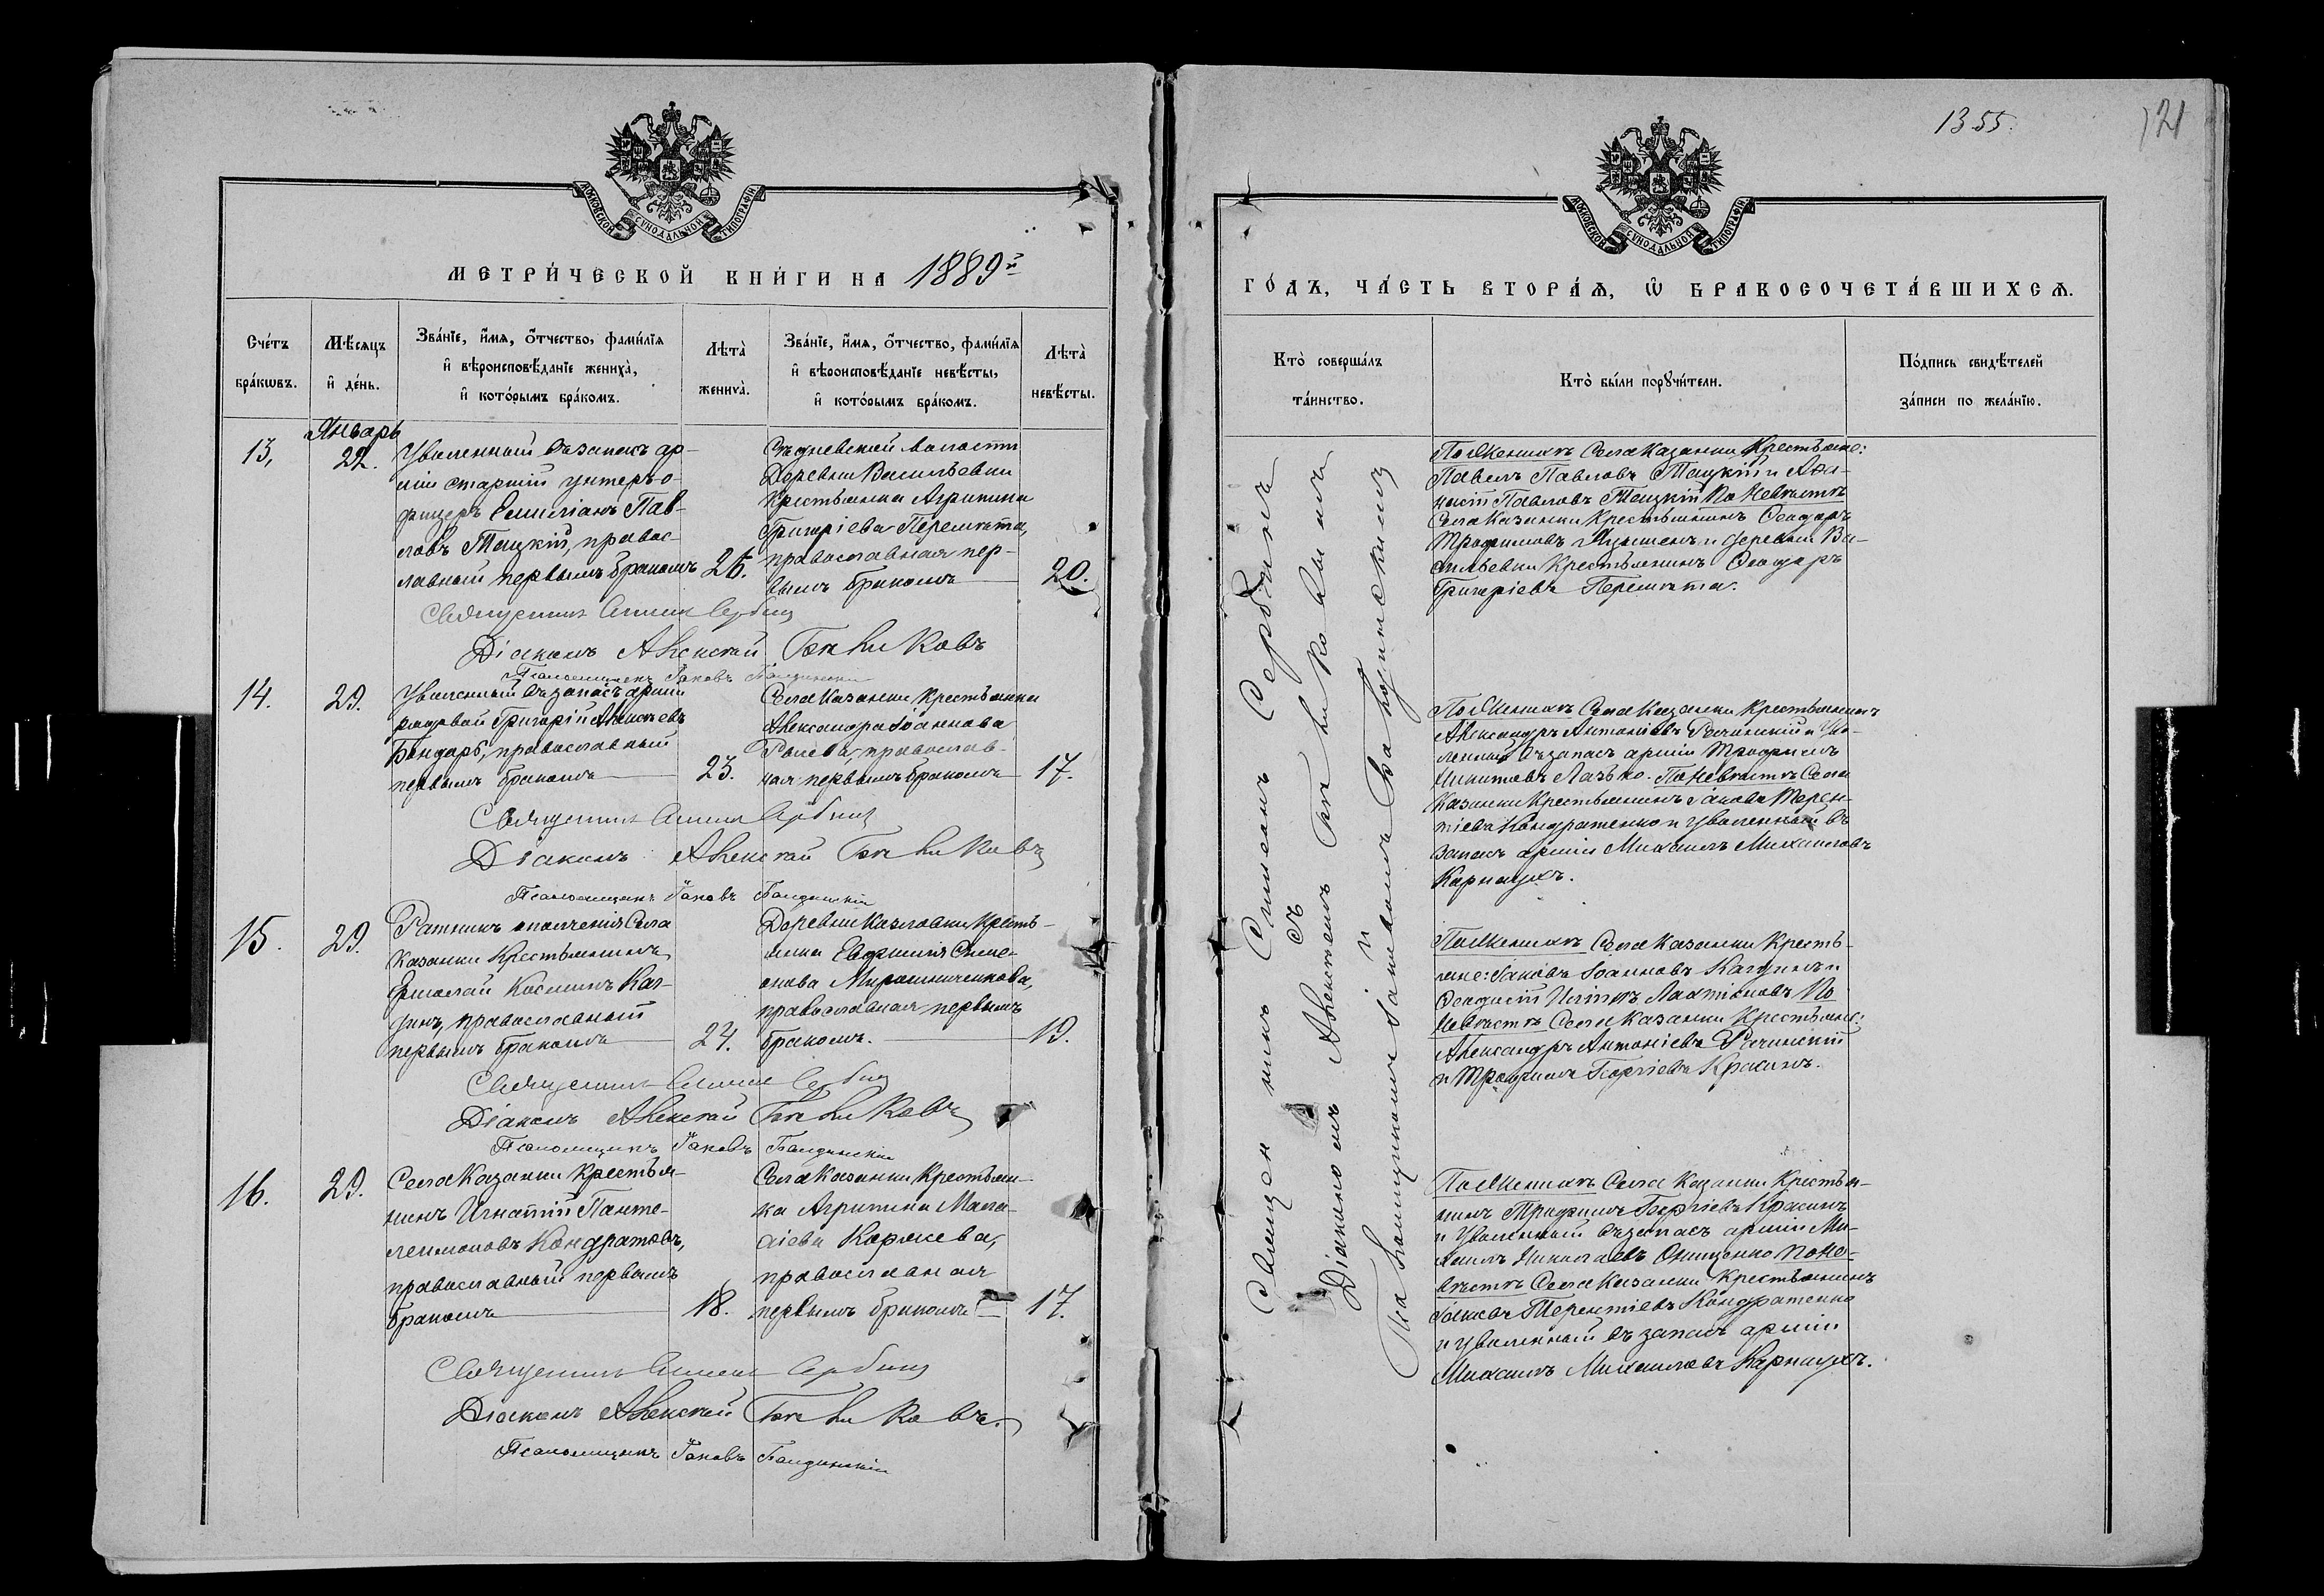 1355.
121
МОСКОВСКОЙ СѴНОДАЛЬНОЙ ТИПОГРАФІИ
МЕТРИ́ЧЕСКОЙ КНИ́ГИ НА 1889й
Сче́тъ бра́кѡвъ.
Мѣ́сяцъ и҆ де́нь.
Зва́нїе, и҆́мѧ, ѻ҆́тчество, фами́лїѧ
и҆ вѣроисповѣ́данїе жениха̀,
и҆ кото́рымъ бра́комъ.
Лѣта̀ жениха̀.
Зва́нїе, и҆́мѧ, ѻ҆́тчество, фами́лїѧ
и҆ вѣроисповѣ́данїе невѣ́сты,
и҆ кото́рымъ бра́комъ.
Лѣта̀ невѣ́сты.
Январь
13, 22.
Уволенный въ запасъ ар-
міи старшій унтеръ-о-
фицеръ Емиліанъ Пав-
ловъ Тацкій, правос-
лавный первымъ бракомъ 26.
волости
Деревни Васильевки
Крестьянка Агрипина
Григоріева Перемота,
православная пер-
вымъ бракомъ 20.
Священникъ Симеонъ Сербинъ
Діаконъ Алексѣй
Псаломщикъ Іаковъ
14. 29.
Уволенный въ запасъ арміи
рядовой Григорій Алексѣевъ
Бондарь, православный
первымъ бракомъ 23.
Села Казанки Крестьянка
Александра Іоаннова
православ-
ная первымъ бракомъ 17.
Священникъ Симеонъ Сербинъ
Діаконъ Алексѣй
Псаломщикъ Іаковъ
15. 29.
Ратникъ ополченія Села
Казанки Крестьянинъ
Ермолай Косминъ Каг-
динъ, православный
первымъ бракомъ 24.
Деревни Казловки Кресть-
янка Евфимія Симе-
онова Мирошниченкова,
православная первымъ
бракомъ. 19.
Священникъ Симеонъ Сербинъ
Діаконъ Алексѣй
Псаломщикъ Іаковъ
16. 29.
Села Казанки Крестья-
нинъ Игнатій Панте-
леимоновъ Кондратовъ,
православный первымъ
бракомъ 18.
Села Казанки Крестьян-
ка Агрипина Мат-
ѳіева Коржева,
православная
первымъ бракомъ 17.
Священникъ Симеонъ Сербинъ
Діаконъ Алексѣй
Псаломщикъ Іаковъ
МОСКОВСКОЙ СѴНОДАЛЬНОЙ ТИПОГРАФІИ
ГО́ДЪ, ЧА́СТЬ ВТОРА́Ѧ, Ѽ БРАКОСОЧЕТА́ВШИХСѦ.
Кто̀ соверша́лъ та́инство.
Кто̀ бы́ли порꙋчи́тели.
По́дпись свидѣ́телей за́писи по жела́нїю.
Священникъ Симеонъ Сербинъ
съ
Діакономъ Алексѣемъ
и
Псаломщикомъ Іаковомъ
По Женихѣ Села Казанки Крестьяне:
Павелъ Павловъ Тацкій и Аѳа-
насій Павловъ Тацкій По Невѣстѣ
Села Казанки Крестьянинъ Ѳеодоръ
Трофимовъ и деревни Ва-
сильевки Крестьянинъ Ѳеодоръ
Григоріевъ Перемота.
По Женихѣ Села Казанки Крестьянинъ
Александръ Антоніевъ Рачинскій и Уво-
ленный въ запасъ арміи Трофимъ
Никитовъ Лазько. По Невѣстѣ Села
Казанки Крестьянинъ Іаковъ Терен-
тіевъ Кондратенко и Уволенный въ
запасъ арміи Михаилъ Михаиловъ
Карнаухъ.
По Женихѣ Села Казанки Кресть-
яне: Іаковъ Іоанновъ Кагдинъ и
Ѳеодосій Лактіоновъ По
Невѣстѣ Села Казанки Крестьяне:
Александръ Антоніевъ Рачинскій
и Трофимъ Георгіевъ Красинъ.
По Женихѣ Села Казанки Крестья-
нинъ Трофимъ Георгіевъ Красинъ
и Уволенный въ запасъ арміи Ми-
хаилъ Николаевъ Онищенко По Не-
вѣстѣ Села Казанки Крестьянинъ
Іаковъ Терентіевъ Кондратенко
и уволенный въ запасъ арміи
Михаилъ Михаиловъ Карнаухъ.